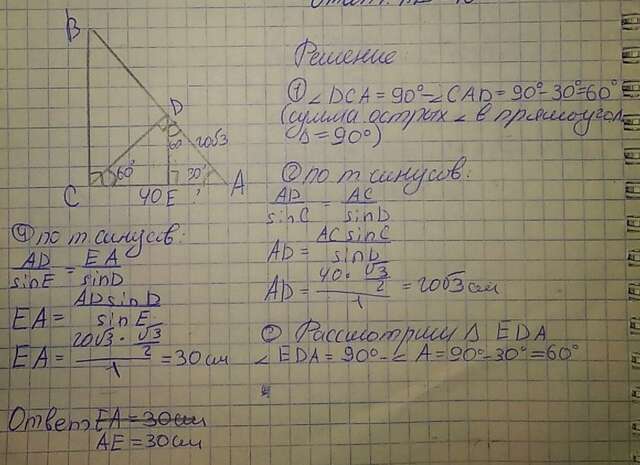 B
D
60°
20√3
60°
30°
C
40
E
A
Решение
① ∠DCA = 90° - ∠CAD = 90° - 30° = 60°
(сумма острых ∠ в прямоугол.
Δ = 90°)
② по т синусов:
AD/sinC = AC/sinD
AD = AC sinC/sinD
AD = (40 · √3/2)/1 = 20√3 см
Рассмотрим Δ EDA
∠EDA = 90° - ∠A = 90° - 30° = 60°
④ по т синусов:
AD/sinE = EA/sinD
EA = AD sinD/sinE
EA = (20√3 · √3/2)/1 = 30 см
Ответ: EA = 30см
AE = 30см